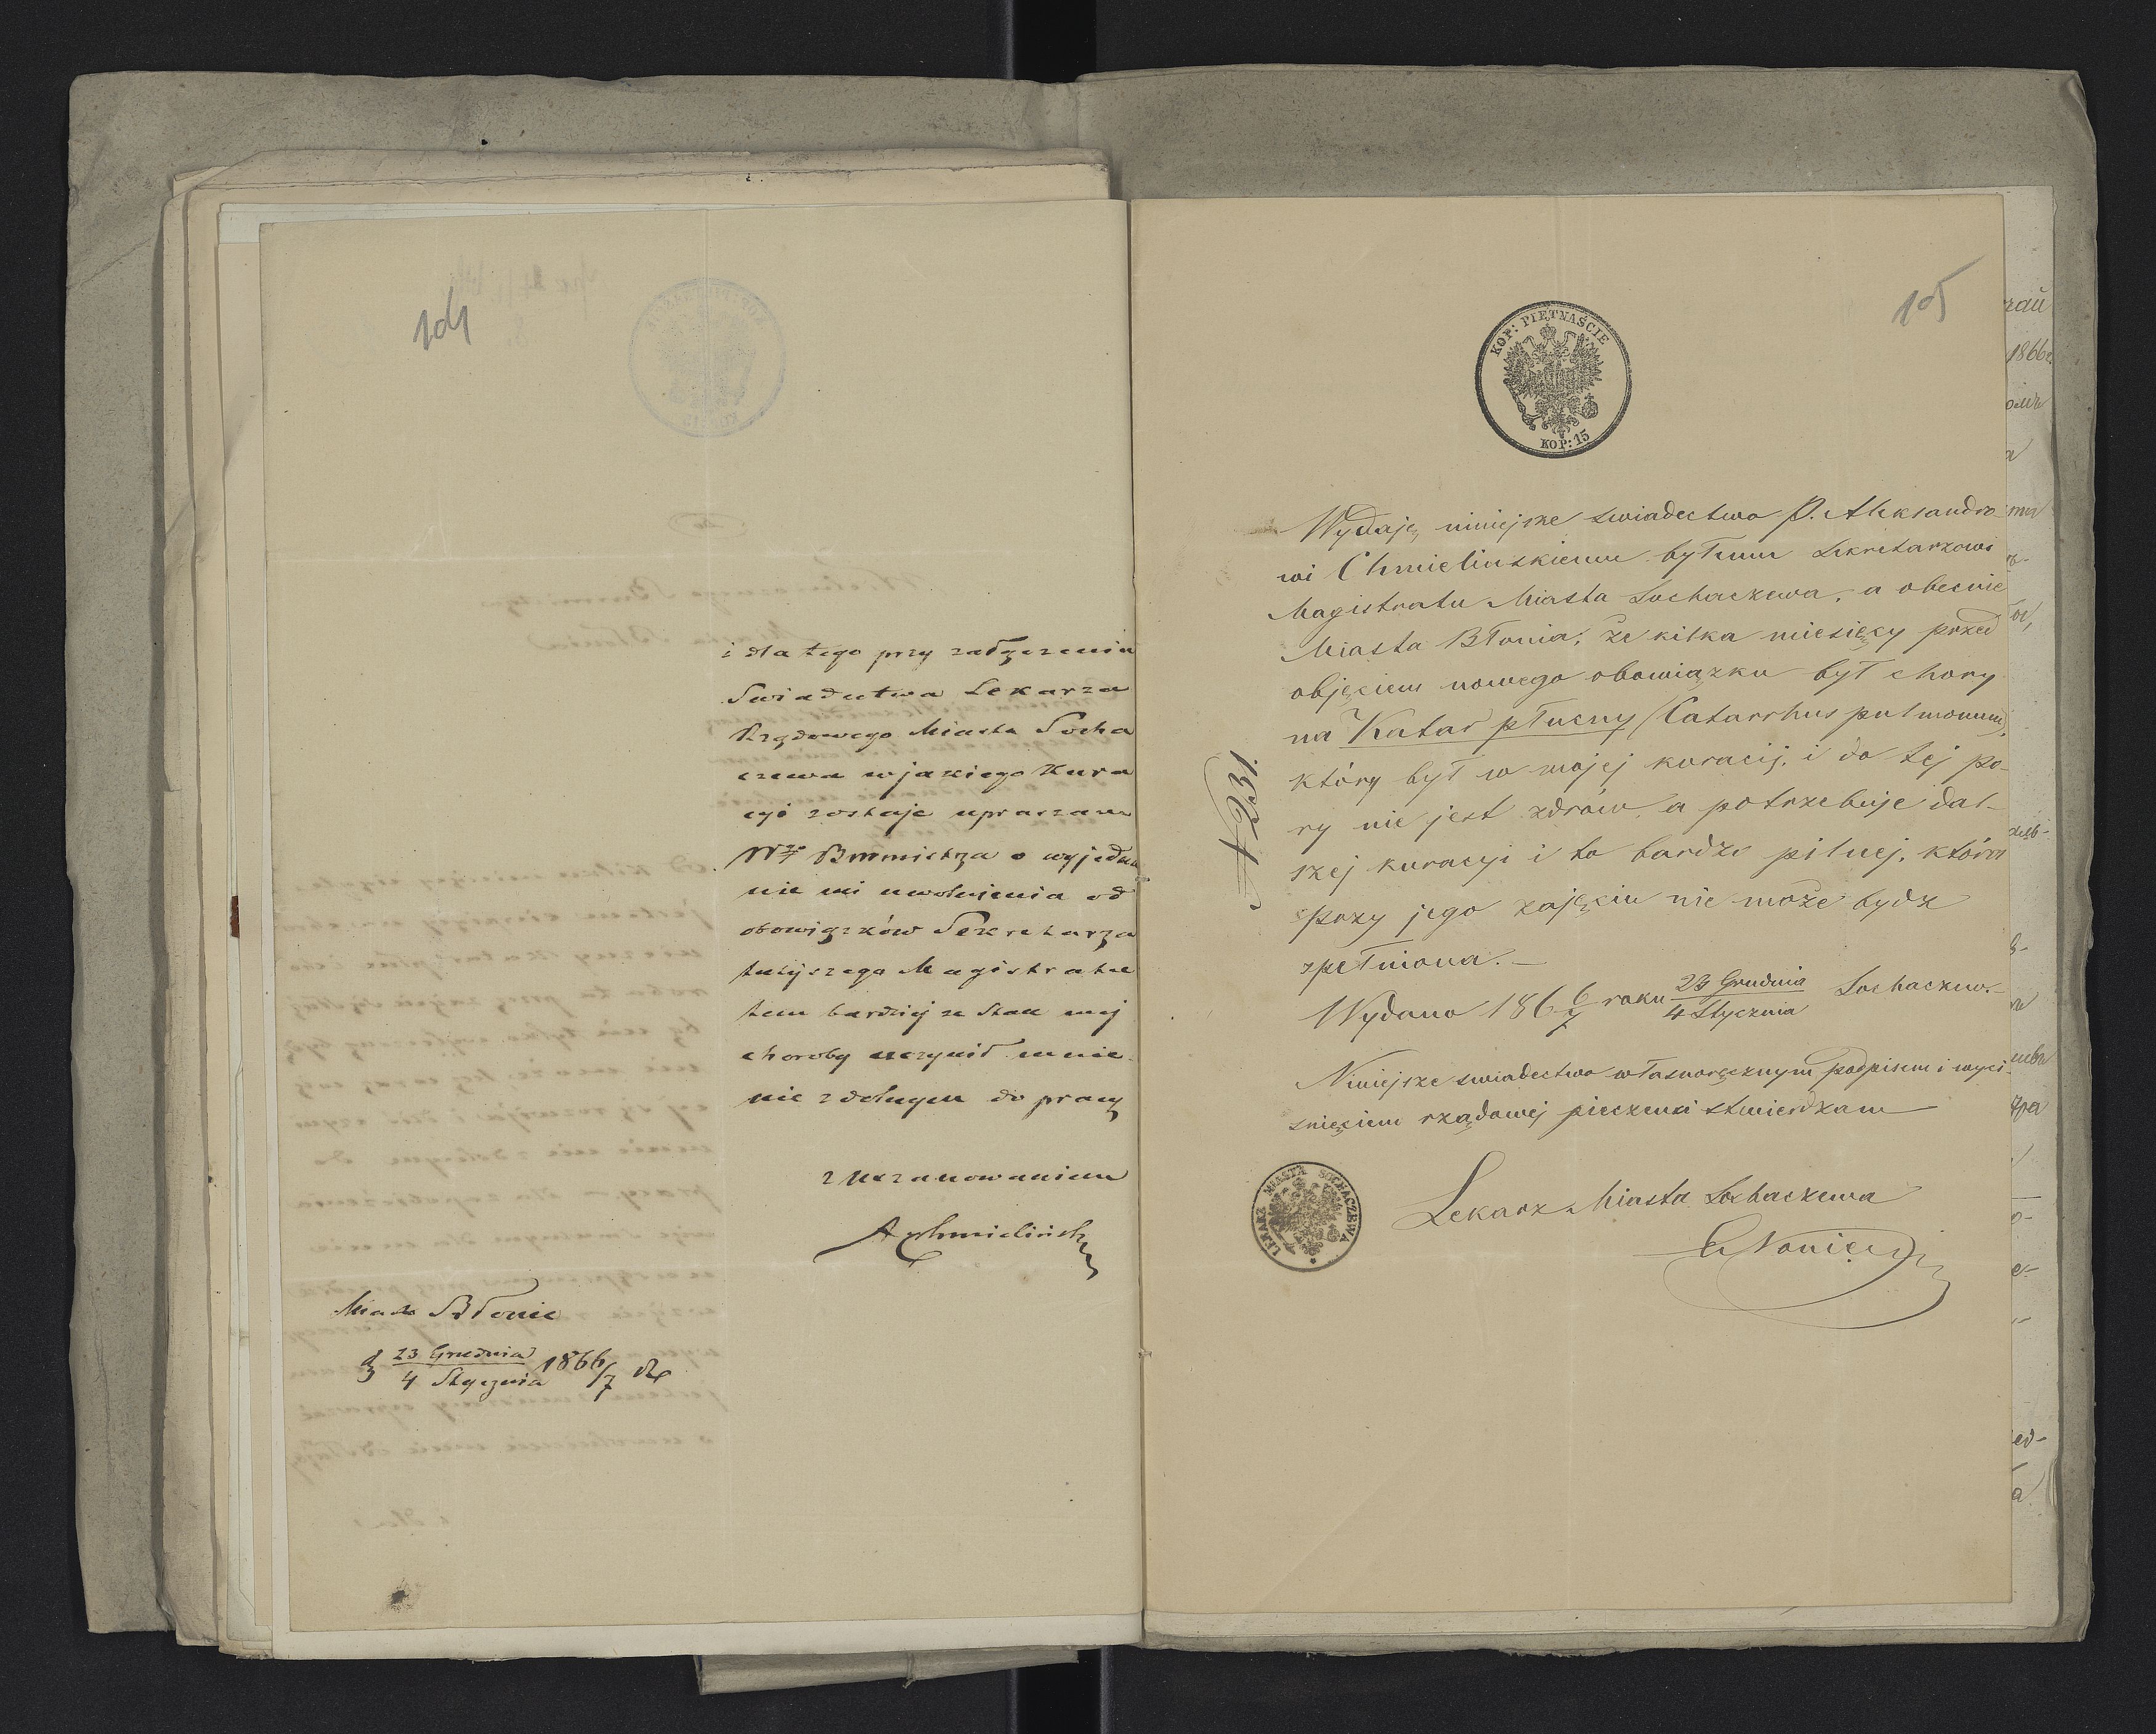 104
i dla tego przy załączeniu
Swiadectwa Lekarza
Rządowego Miasta Socha
czewa w jakiego Kura
cyi zostaje upraszam
Wgo Burmistrza o wyjedna
nie mi uwolnienia od
obowiązków Sekretarza
tutejszego Magistratu
tem bardziej ze stan mej
choroby uczynił mnie
nie zdolnym do pracy
z uszanowaniem
AChmieliński
Miasto Błonie
d 23 Grudnia / 4 Stycznia 1866/7 Rn
105
KOP: PIĘTNAŚCIE
KOP: 15
Wydaję niniejsze swiadectwo P. Aleksandro-
wi Chmielinskiemu byłemu Sekretarzowi
Magistratu Miasta Sochaczewa, a obecnie
Miasta Błonia, że kilka miesięcy przed
objęciem nowego obowiązku był chory
na Katar płucny (Catarrhus pulmonum),
który był w mojej kuracij, i do tej po-
ry nie jest zdrów, a potrzebuje dal-
szej kuracyi i to bardzo pilnej, która
przy jego zajęciu nie może bydz
spełniona.—
Wydano 1866/7 roku 23 Grudnia / 4 Stycznia Sochaczew.—
N 231.
Niniejsze swiadectwo własnoręcznym podpisem i wyci-
snięciem rządowej pieczęci stwierdzam
LEKARZ MIASTA SOCHACZEWA
Lekarz Miasta Sochaczewa